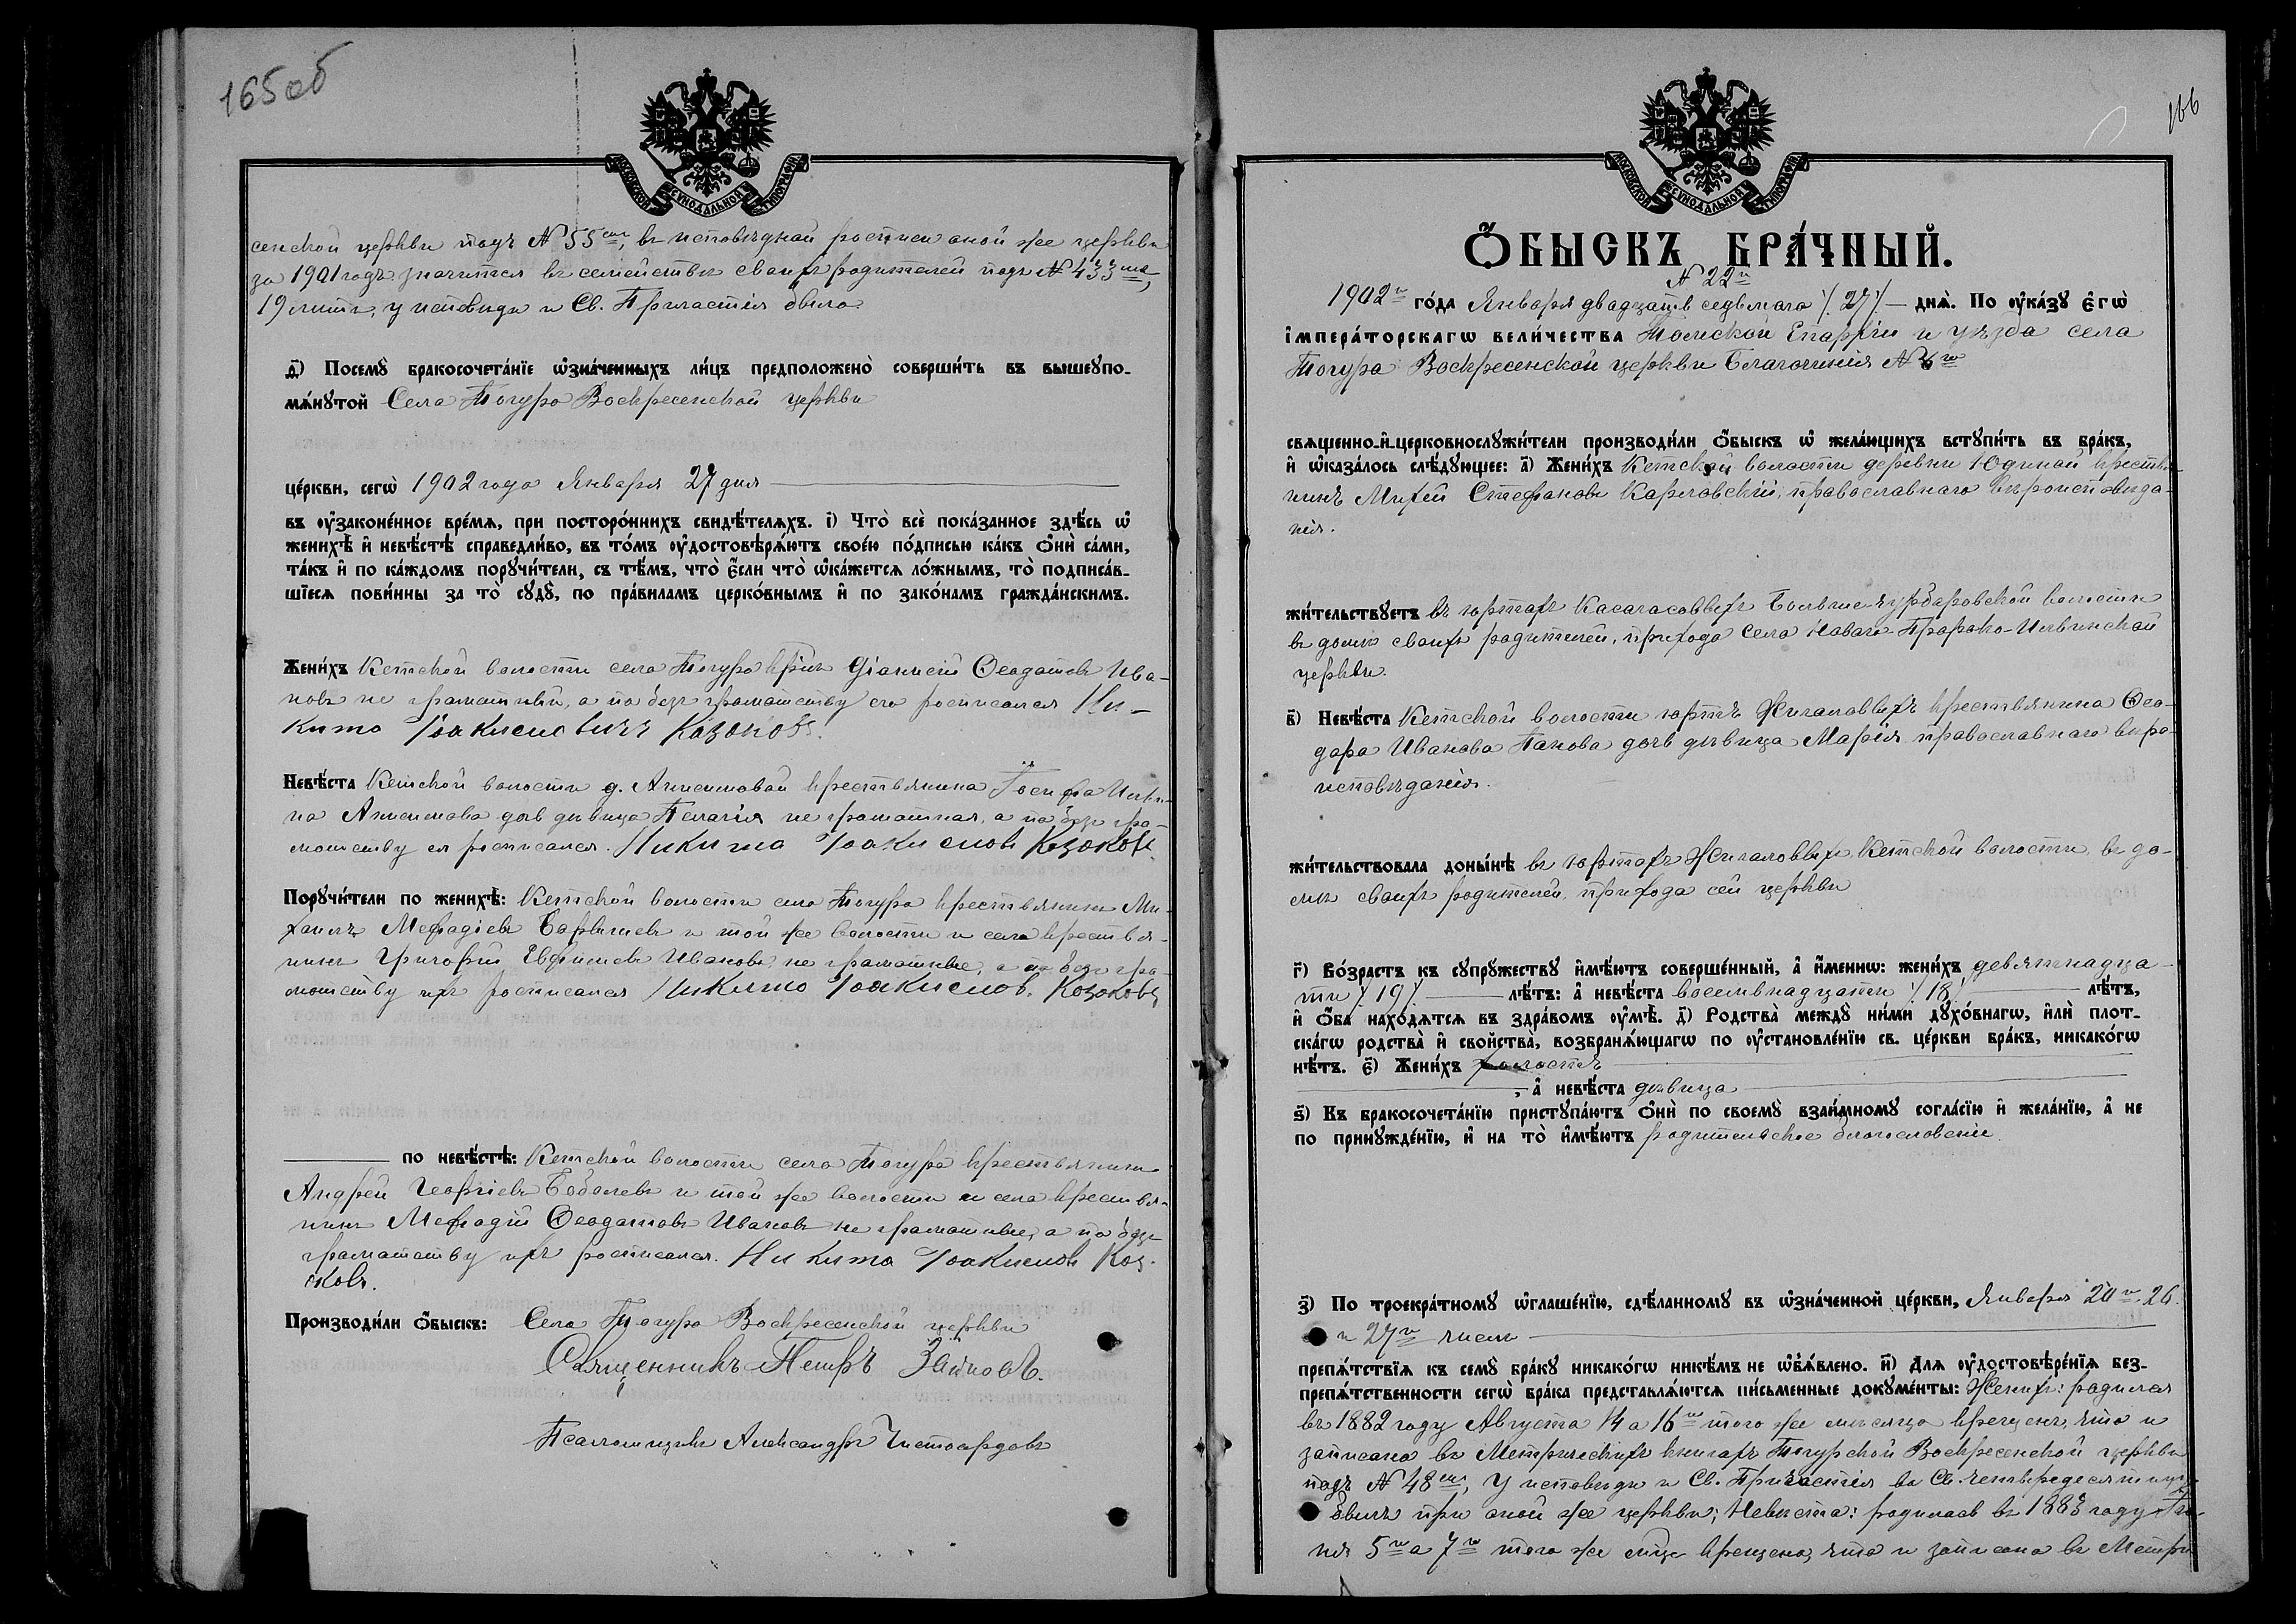 165 об
МОСКОВСКОЙ СѴНОДАЛЬНОЙ ТИПОГРАФІИ
сенской церкви подъ № 55ым, въ исповѣдной росписи оной же церкви
за 1901 годъ значится въ семействѣ своихъ родителей подъ № 433мъ,
19 лѣтъ, у исповѣди и Св. Причастія была
д҃) Посемꙋ̀ бракосочета́нїе ѡ҆зна́ченныхъ ли́цъ предположено̀ соверши́ть въ вышеꙋпо-
мѧ́нꙋтой Села Тогура Воскресенской церкви
це́ркви, сегѡ̀ 1902 года Января 27 дня
въ ᲂу҆зако́ненное вре́мѧ, при посторо́ннихъ свидѣ́телѧхъ. і҃) Что̀ всѐ пока́занное здѣ́сь ѡ҆
женихѣ̀ и҆ невѣ́стѣ справедли́во, въ то́мъ ᲂу҆достовѣрѧ́ютъ свое́ю по́дписью ка́къ ѻ҆нѝ са́ми,
та́къ и҆ по ка́ждомъ порꙋчи́тели, съ тѣ́мъ, что̀ є҆́сли что̀ ѡ҆ка́жется ло́жнымъ, то̀ подписа́в-
шїеся пови́нны за то̀ сꙋдꙋ̀, по пра́виламъ церко́внымъ и҆ по зако́намъ гражда́нскимъ.
Жени́хъ Кетской волости села Тогура кр̃нъ Діонисій Ѳеодотовъ Ива-
новъ не грамотный, а по безграмотству его росписался Ни-
кита Іоакимовичъ Казаковъ.
Невѣ́ста Кетской волости д. Анисимовой крестьянина Іосифа Ильи-
на Анисимова дочь дѣвица Пелагія не грамотная, а по безгра-
мотству ея росписался. Никита Іоакимовъ Козаковъ.
Порꙋчи́тели по женихѣ̀: Кетской волости села Тогура крестьянинъ Ми-
хаилъ Меѳодіевъ Барышевъ и той же волости и села крестья-
нинъ Григорій Евфимовъ Ивановъ не грамотные, а по безгра-
мотству ихъ росписался Никита Іоакимовъ. Козаковъ
по невѣ́стѣ: Кетской волости села Тогура крестьянинъ
Андрей Георгіевъ Соболевъ и той же волости и села крестья-
нинъ Меѳодій Ѳеодотовъ Ивановъ не грамотные, а по без-
грамотству ихъ росписался. Никита Іоакимовъ Коз-
аковъ.
Производи́ли ѻ҆́быскъ: Села Тогура Воскресенской церкви
Священникъ Петръ
Псаломщикъ Александръ Чистосердовъ
166
МОСКОВСКОЙ СѴНОДАЛЬНОЙ ТИПОГРАФІИ
Ѻ҆́БЫСКЪ БРА́ЧНЫЙ.
№ 22й
1902го го́да Января двадцать седьмаго /.27/. днѧ̀. По ᲂу҆ка́зꙋ є҆гѡ̀
і҆мпера́торскагѡ вели́чества Томской Епархіи и уѣзда села
Тогура Воскресенской церкви Благочинія № 6го
свѧще́нно-и҆-церковнослꙋжи́тели производи́ли ѻ҆́быскъ ѡ҆ жела́ющихъ встꙋпи́ть въ бра́къ,
и҆ ѡ҆каза́лось слѣ́дꙋющее: а҃) Жени́хъ Кетской волости деревни Юдиной крестья-
нинъ Михей Стефановъ Карловскій, православнаго вѣроисповѣда-
нія.
жи́тельствꙋетъ въ юртахъ Касагасовыхъ Больше-Чурбаровской волости
въ домѣ своихъ родителей, прихода села Новаго-Пророко-Ильинской
церкви.
в҃) Невѣ́ста Кетской волости юртъ Жигаловыхъ крестьянина Ѳео-
дора Иванова Панова дочь дѣвица Марія православнаго вѣро-
исповѣданія.
жи́тельствовала донынѣ въ юртахъ Жигаловыхъ, Кетской волости, въ до-
мѣ своихъ родителей, прихода сей церкви
г҃) Во́зрастъ къ сꙋпрꙋжествꙋ и҆мѣ́ютъ соверше́нный, а҆ и҆́меннѡ: жени́хъ девятнадца-
ти /.19/. лѣ́тъ: а҆ невѣ́ста восемнадцати /.18/. лѣ́тъ,
и҆ ѻ҆́ба нахо́дѧтсѧ въ здра́вомъ ᲂу҆мѣ̀. д҃) Родства̀ междꙋ̀ ни́ми дꙋхо́внагѡ, и҆лѝ плот-
ска́гѡ родства̀ и҆ свойства̀, возбранѧ́ющагѡ по ᲂу҆становле́нїю св. це́ркви бра́къ, никако́гѡ
нѣ́тъ. є҃) Жени́хъ холостъ
, а҆ невѣ́ста дѣвица
ѕ҃) Къ бракосочета́нїю пристꙋпа́ютъ ѻ҆нѝ по своемꙋ̀ взаи́мномꙋ согла́сїю и҆ жела́нїю, а҆ не
по принꙋжде́нїю, и҆ на то̀ и҆мѣ́ютъ родительское благословеніе.
з҃) По троекра́тномꙋ ѡ҆глаше́нїю, сдѣ́ланномꙋ въ ѡ҆зна́ченной це́ркви, Января 20го 26.
и 27го числъ
препѧ́тствїѧ къ семꙋ̀ бра́кꙋ никако́гѡ никѣ́мъ не ѡ҆б̾ѧ́влено. и҃) Для ᲂу҆достовѣре́нїѧ без-
препѧ́тственности сегѡ̀ бра́ка представлѧ́ются пи́сьменные докꙋме́нты: Женихъ: родился
въ 1882 году Августа 14 а 16го того же мѣсяца крещенъ, что и
записано въ Метрическихъ книгахъ Тогурской Воскресенской церкви
подъ № 48ым, У исповѣди и Св. Причастія въ Св. четыредесятницу
былъ при оной же церкви; Невѣста: родилась въ 1883 году Iю-
ня 5го а 7го того же мѣс̃ца крещена, что и записано въ Метри-